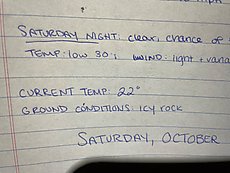 ?
SATURDAY NIGHT: clear, chance of
TEMP: low 30°; WIND: light + varia
CURRENT TEMP: 22°
GROUND CONDITIONS: Icy rock
SATURDAY, OCTOBER